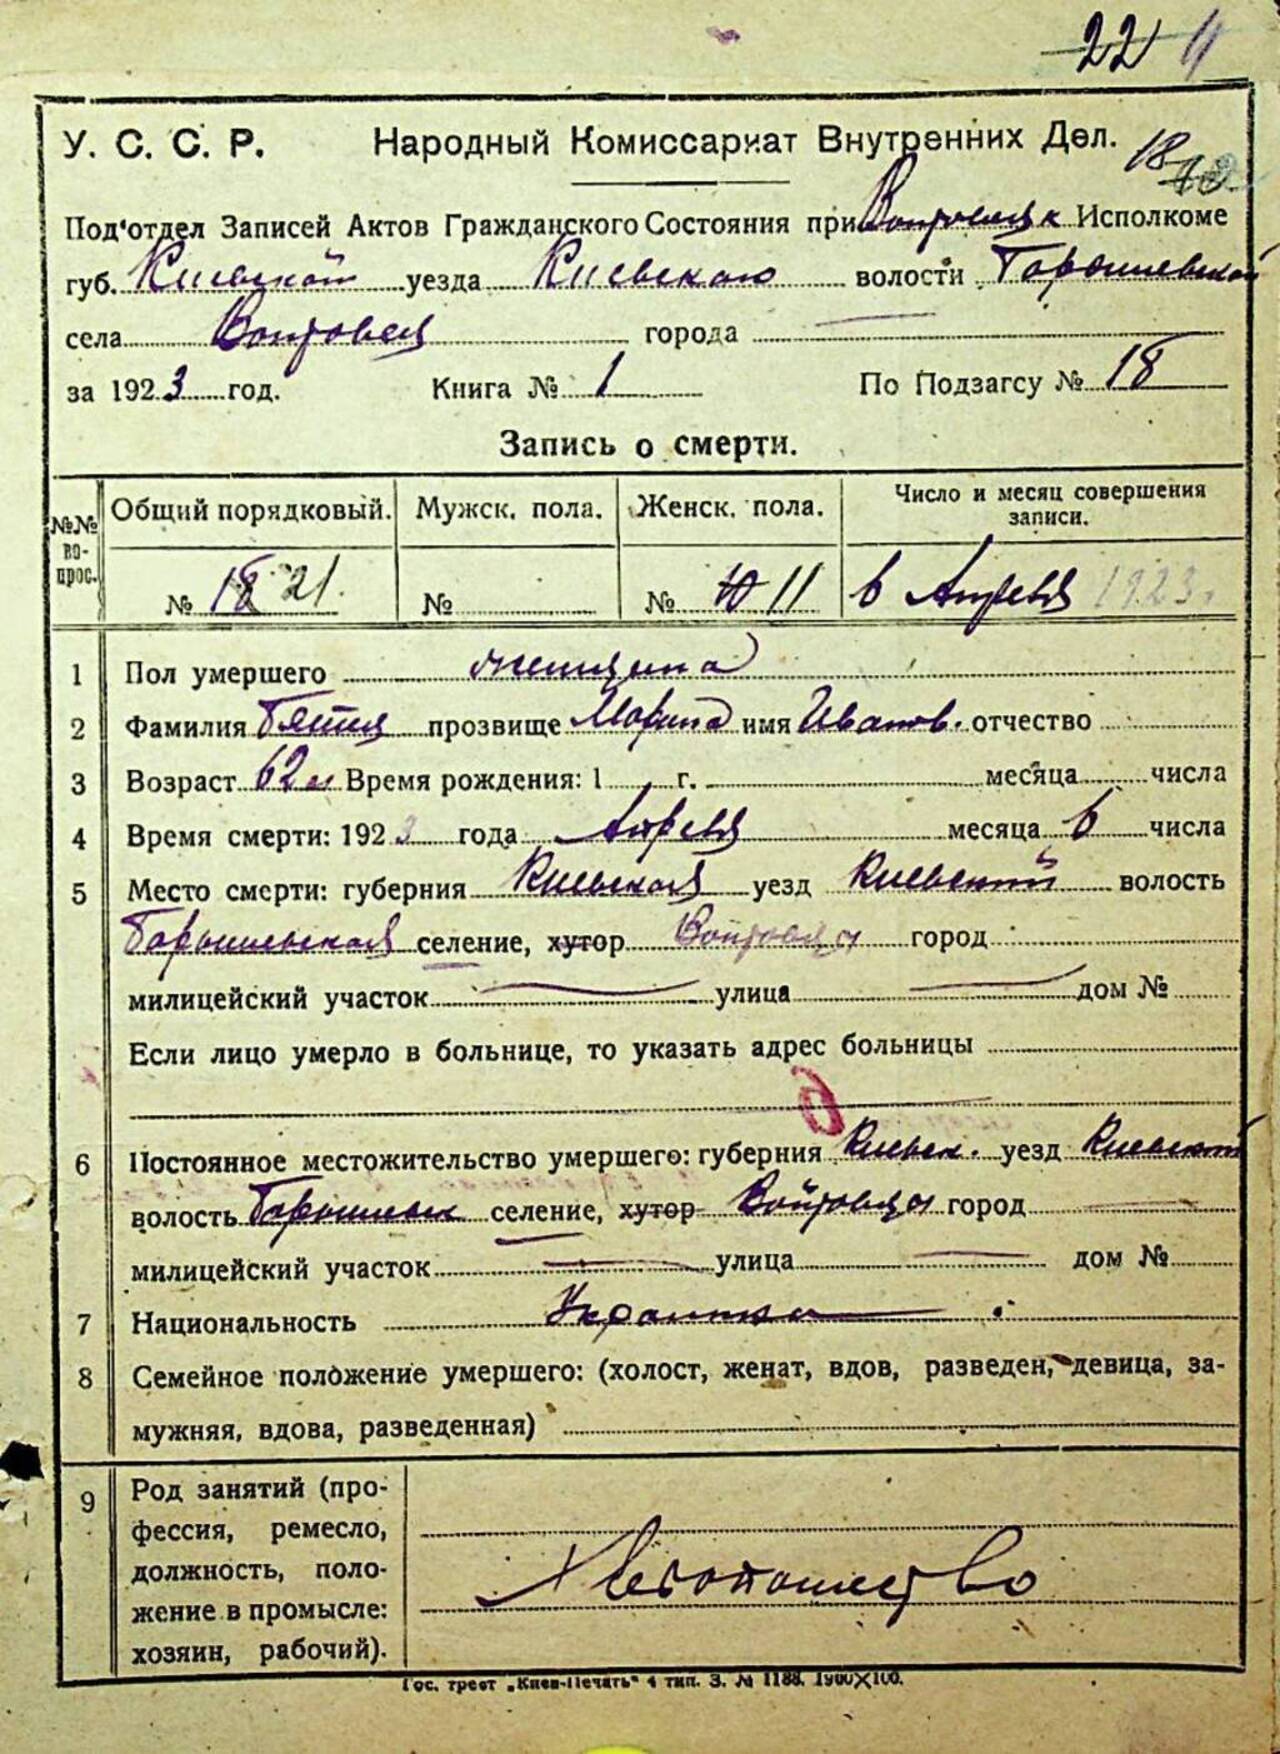 22
У. С. С. Р. Народный Комиссариат Внутренних Дел. 18
Под'отдел Записей Актов Гражданского Состояния при Исполкоме
губ. Киевской уезда Киевского волости
села города
за 1923 год. Книга № 1 По Подзагсу № 18
Запись о смерти.
№№ во-прос. Общий порядковый. Мужск. пола. Женск. пола. Число и месяц совершения записи.
№ 18 21. № № 10 11 6 Апреля 1923.
1 Пол умершего женщина
2 Фамилия прозвище Марина имя Иванов. отчество
3 Возраст 62 Время рождения: 1 г. месяца числа
4 Время смерти: 1923 года Апреля месяца 6 числа
5 Место смерти: губерния Киевская уезд Киевский волость
селение, хутор город
милицейский участок улица дом №
Если лицо умерло в больнице, то указать адрес больницы
6 Постоянное местожительство умершего: губерния Киевск. уезд Киевский
волость селение, хутор Войтовця город
милицейский участок улица дом №
7 Национальность Украинка
8 Семейное положение умершего: (холост, женат, вдов, разведен, девица, за-
мужняя, вдова, разведенная)
9 Род занятий (про-
фессия, ремесло,
должность, поло-
жение в промысле:
хозяин, рабочий).
Хлебопашество
Гос. трест „Киев-Печать" 4 тип. З. № 1188. 1900×100.